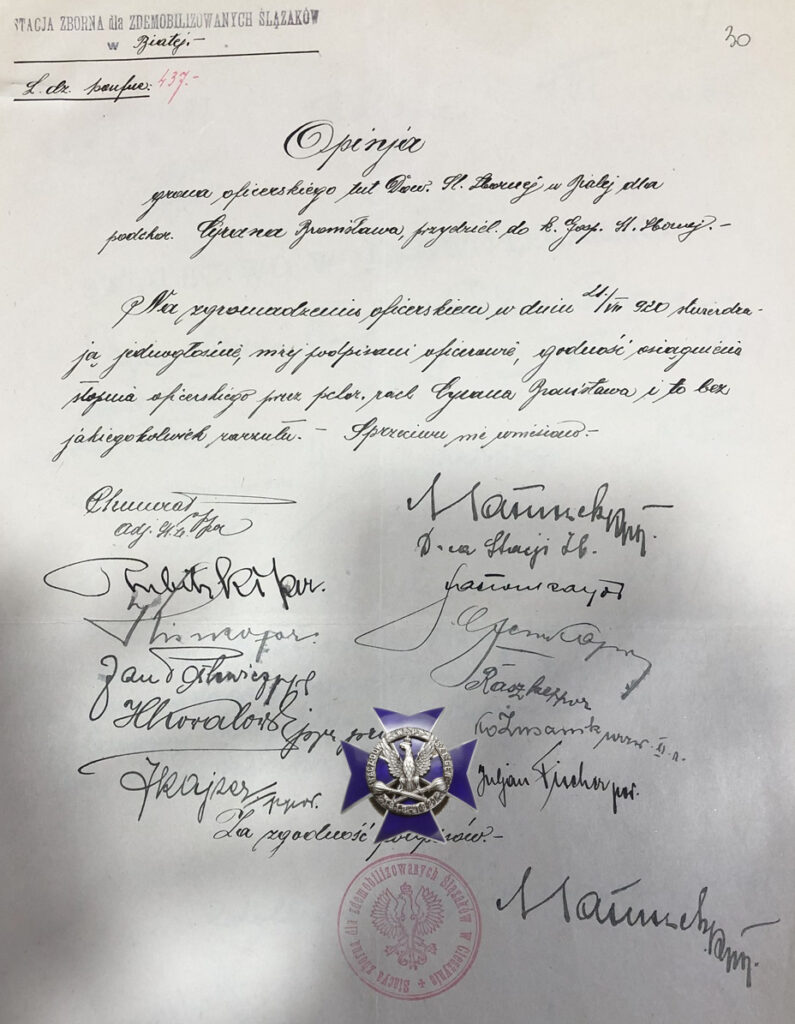 STACJA ZBORNA dla ZDEMOBILIZOWANYCH ŚLĄZAKÓW
w Białej.-
30
L. dz. poufne: 437.-
Opinja
grona oficerskiego tut Dow. St. Zbornej w Białej dla
podchor. Cyrana Bronisława, przydziel. do k. Gosp. St. Zbornej.-
Na zgromadzeniu oficerskiem w dniu 21/VII 920 stwierdza-
ją jednogłośnie, niżej podpisani oficerowie, godność osiągnięcia
stopnia oficerskiego przez pchor. rach Cyrana Bronisława i to bez
jakiegokolwiek zarzutu. - Sprzeciwu nie wniesiono.-
D-ca Stacji Zb.
Jan
Raszka ppor
JKajzer ppor.
Juljan Fischer por.
Za zgodność podpisów.-
Stacya zborna dla zdemobilizowanych Ślązaków w Cieszynie